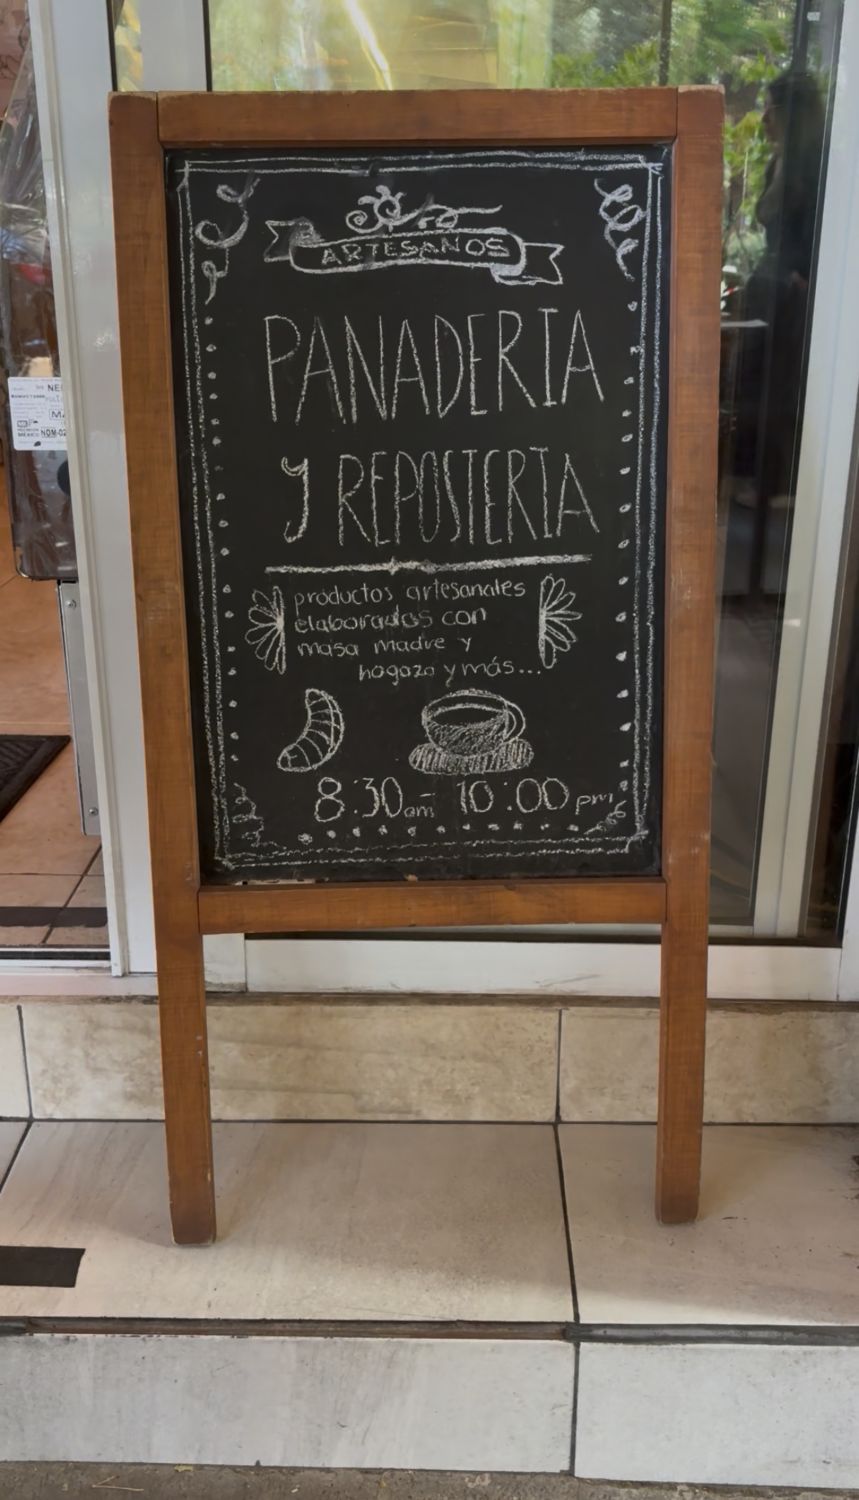 ARTESANOS
PANADERIA
Y REPOSTERIA
productos artesanales
elaborados con
masa madre y
hogaza y más...
8:30am - 10:00 pm
NOM-02